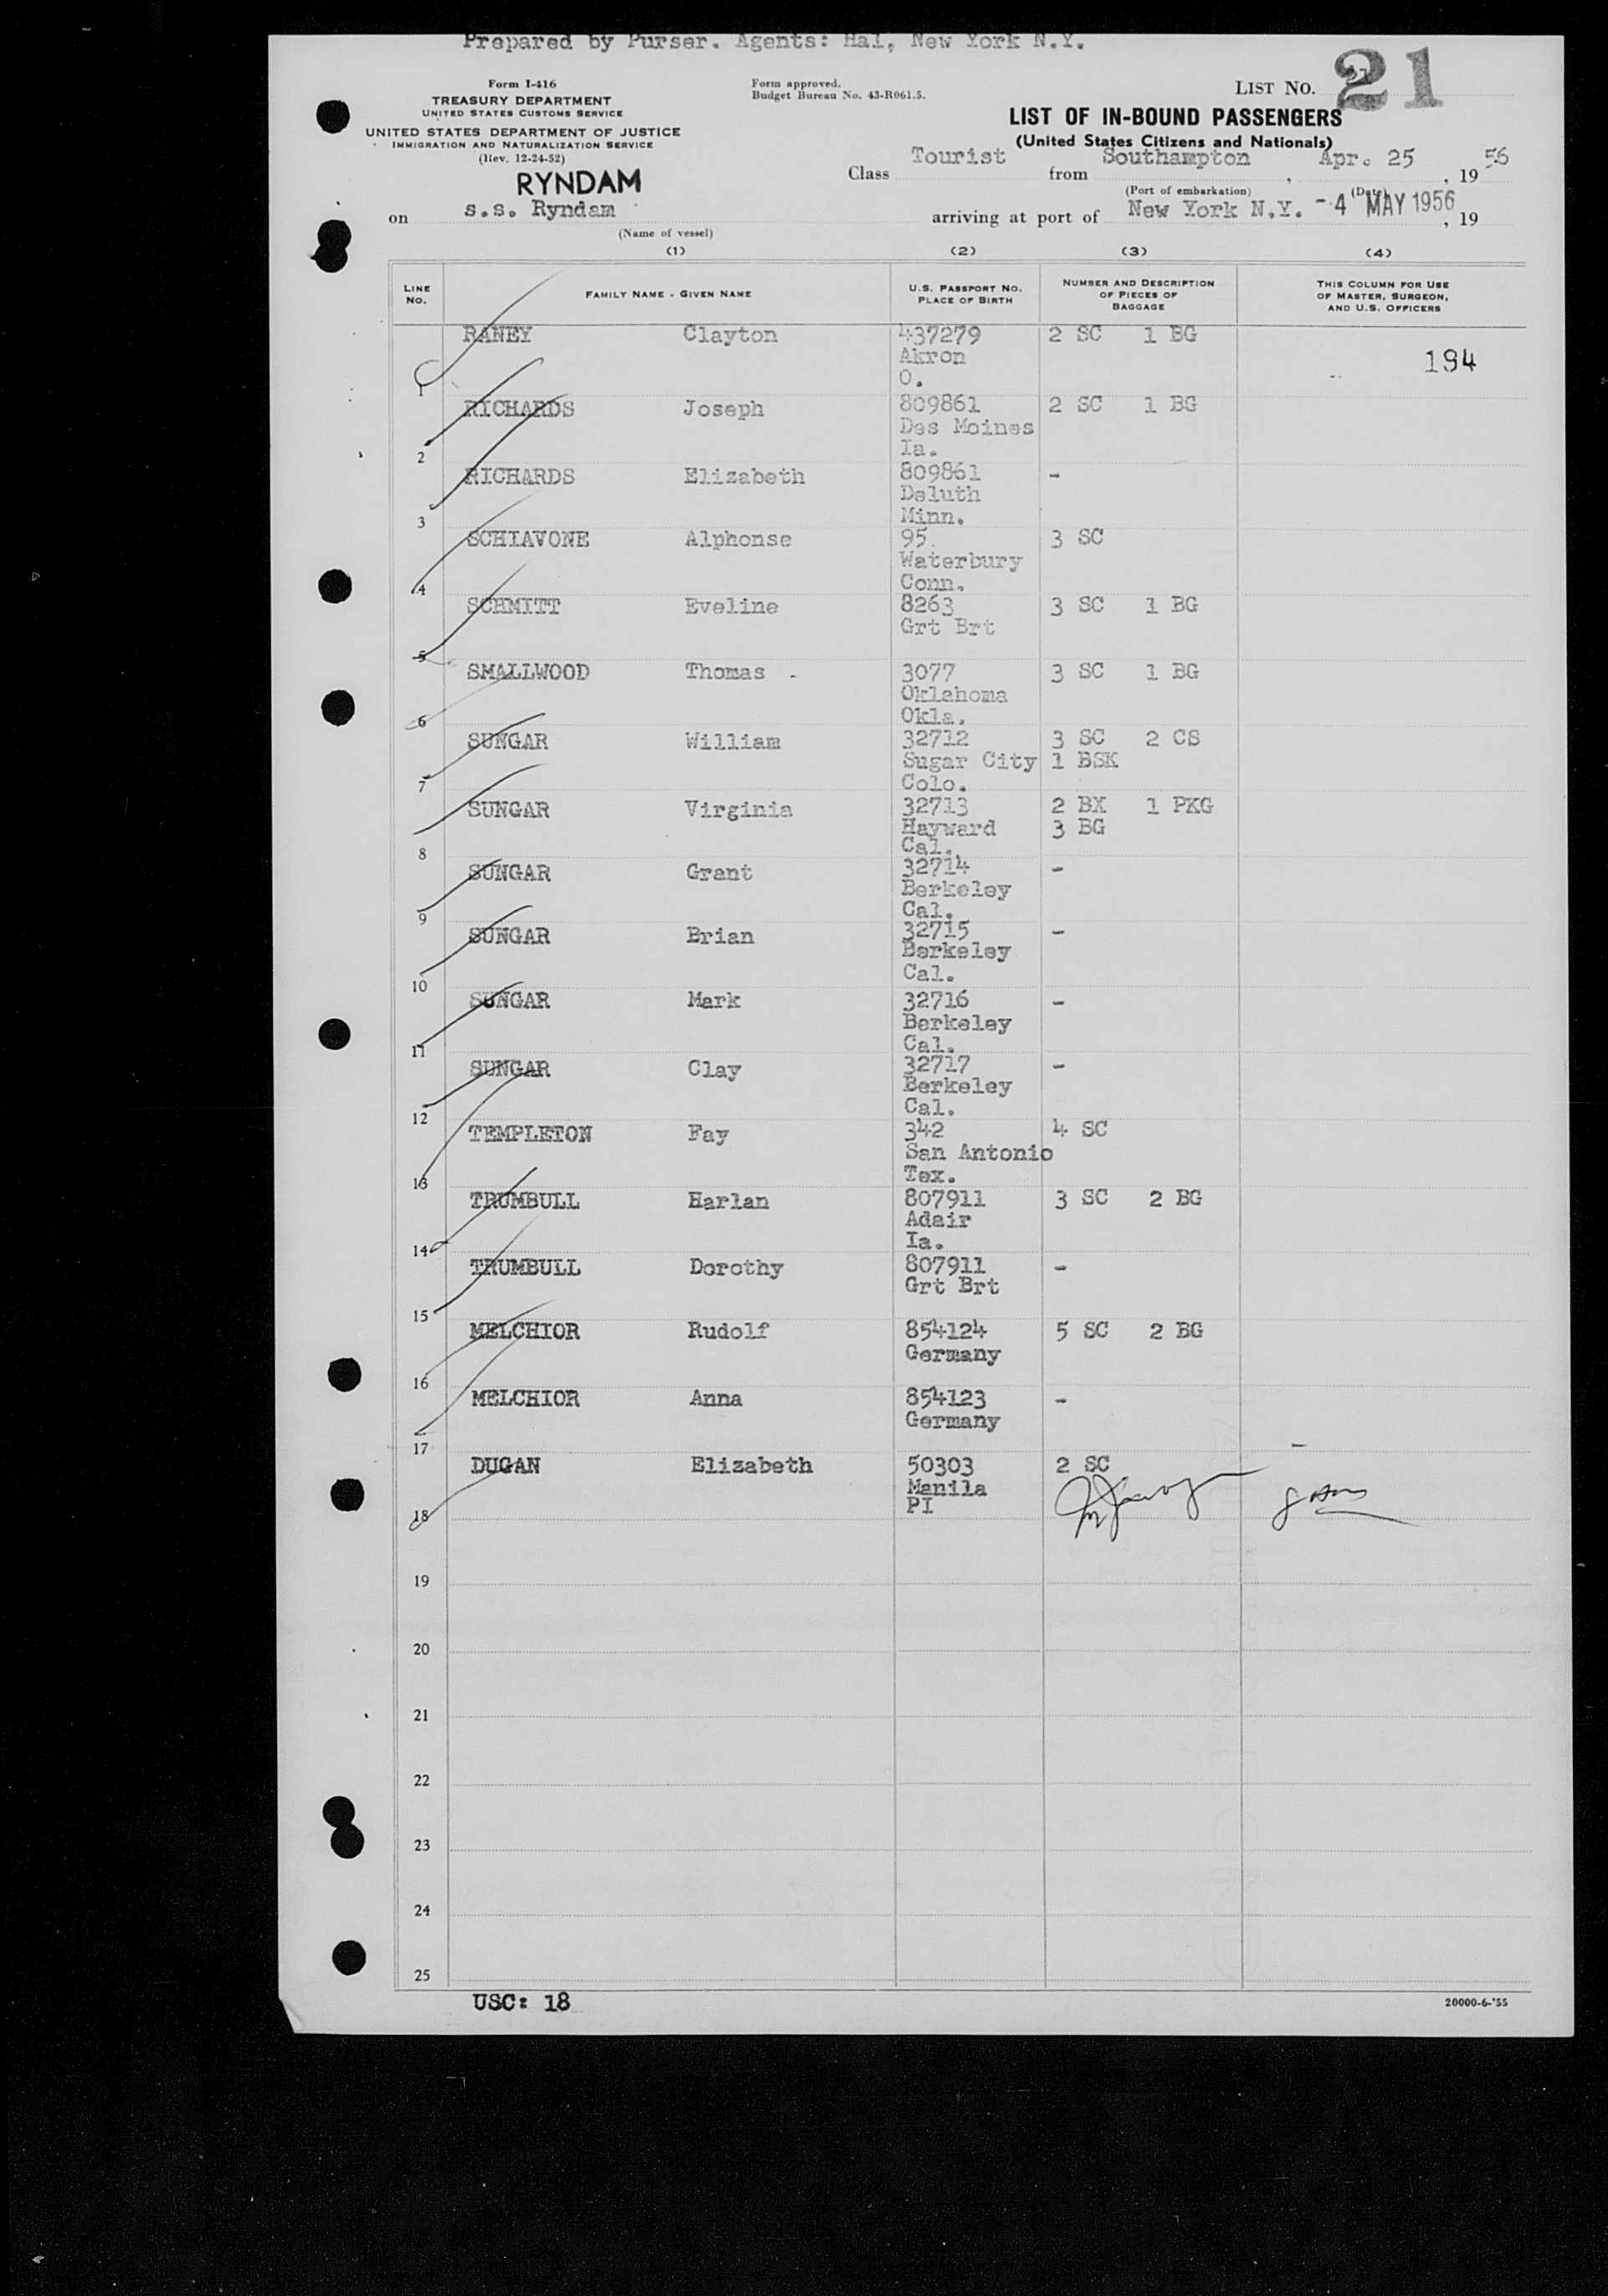 Prepared by Purser. Agents: Hal, New York N.Y.
Form I-416
TREASURY DEPARTMENT
UNITED STATES CUSTOMS SERVICE
UNITED STATES DEPARTMENT OF JUSTICE
IMMIGRATION AND NATURALIZATION SERVICE
(Rev. 12-24-52)
Form approved.
Budget Bureau No. 43-R061.5.
LIST No. 21
LIST OF IN-BOUND PASSENGERS
(United States Citizens and Nationals)
Class Tourist from Southampton, Apr. 25, 1956
(Port of embarkation) (Date)
RYNDAM
on s.s. Ryndam arriving at port of New York N.Y. -4 MAY 1956, 19
(Name of vessel)
(1) (2) (3) (4)
LINE NO. FAMILY NAME - GIVEN NAME U.S. PASSPORT NO. PLACE OF BIRTH NUMBER AND DESCRIPTION OF PIECES OF BAGGAGE THIS COLUMN FOR USE OF MASTER, SURGEON, AND U.S. OFFICERS
RANEY Clayton 437279 2 SC 1 BG
Akron 194
1 O.
RICHARDS Joseph 809861 2 SC 1 BG
Des Moines
2 Ia.
RICHARDS Elizabeth 809861 -
Deluth
3 Minn.
SCHIAVONE Alphonse 95 3 SC
Waterbury
4 Conn.
SCHMITT Eveline 8263 3 SC 1 BG
Grt Brt
5
SMALLWOOD Thomas 3077 3 SC 1 BG
Oklahoma
6 Okla.
SUNGAR William 32712 3 SC 2 CS
Sugar City 1 BSK
7 Colo.
SUNGAR Virginia 32713 2 BX 1 PKG
Hayward 3 BG
8 Cal.
SUNGAR Grant 32714 -
Berkeley
9 Cal.
SUNGAR Brian 32715 -
Berkeley
10 Cal.
SUNGAR Mark 32716 -
Berkeley
11 Cal.
SUNGAR Clay 32717 -
Berkeley
12 Cal.
TEMPLETON Fay 342 4 SC
San Antonio
13 Tex.
TRUMBULL Harlan 807911 3 SC 2 BG
Adair
14 Ia.
TRUMBULL Dorothy 807911 -
Grt Brt
15
MELCHIOR Rudolf 854124 5 SC 2 BG
Germany
16
MELCHIOR Anna 854123 -
Germany
17
DUGAN Elizabeth 50303 2 SC
Manila
18 PI
19
20
21
22
23
24
25
USC: 18
20000-6-'55